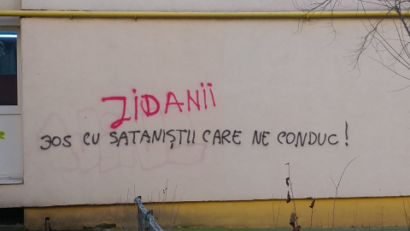 JIDANII
JOS CU SATANIȘTII CARE NE CONDUC!